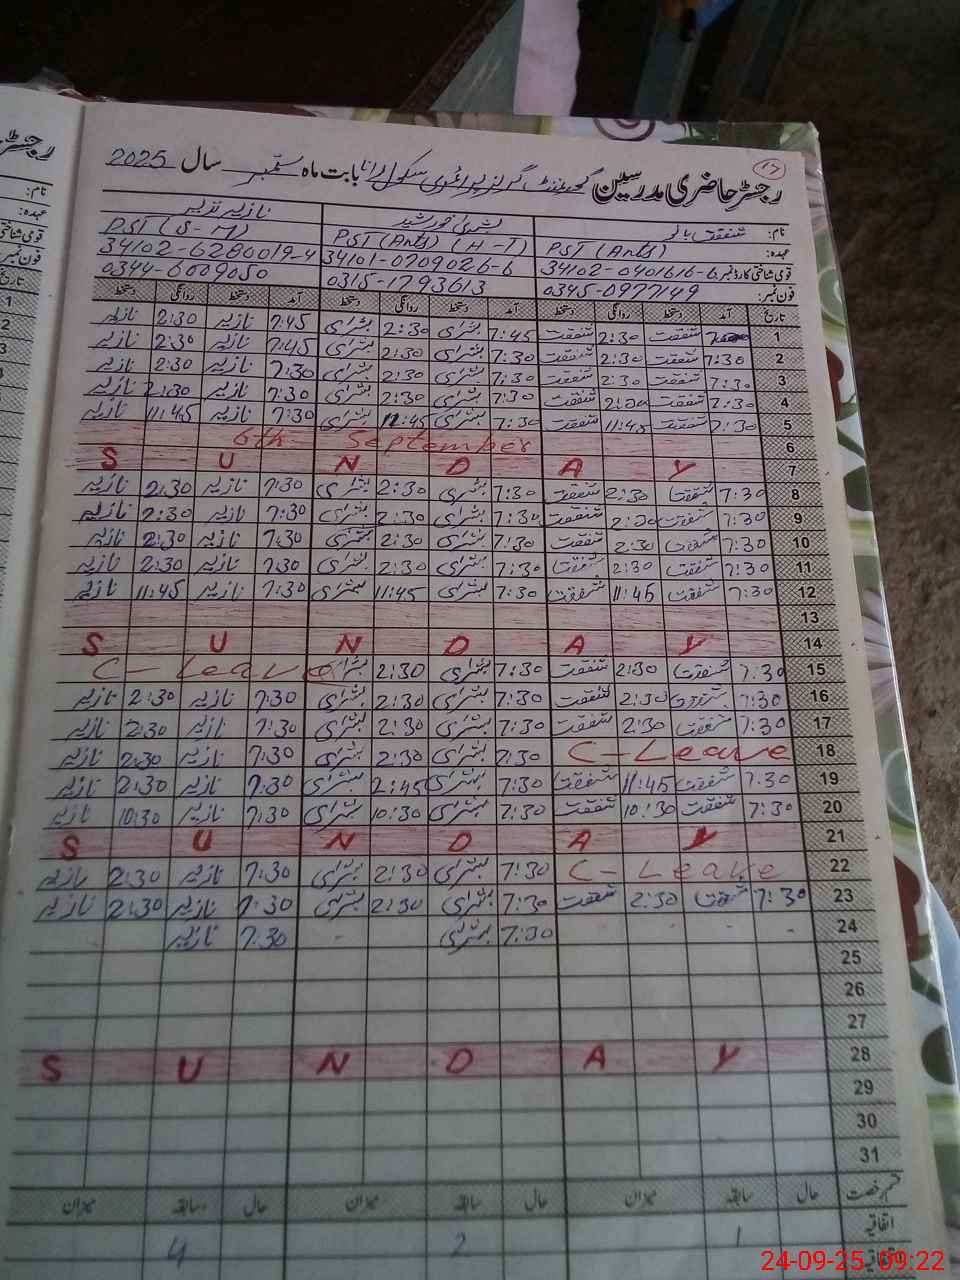 رجسٹر حاضری مدرسین گورنمنٹ گرلز پرائمری سکول رانا بابت ماہ ستمبر سال 2025
نام: شفقت بانو بشریٰ خورشید نازیہ نذیر
عہدہ: PST (Arts) PST (Arts) (H-T) PST (S-M)
قومی شناختی کارڈ نمبر: 34102-0401616-6 34101-0709026-6 34102-6280019-4
فون نمبر: 0345-0977149 0315-1793613 0344-6609050
تاریخ آمد دستخط روانگی دستخط آمد دستخط روانگی دستخط آمد دستخط روانگی دستخط
1 شفقت 2:30 شفقت 7:45 بشریٰ 2:30 بشریٰ 7:45 نازیہ 2:30 نازیہ
2 7:30 شفقت 2:30 شفقت 7:30 بشریٰ 2:30 بشریٰ 7:45 نازیہ 2:30 نازیہ
3 7:30 شفقت 2:30 شفقت 7:30 بشریٰ 2:30 بشریٰ 7:30 نازیہ 2:30 نازیہ
4 7:30 شفقت 2:30 شفقت 7:30 بشریٰ 2:30 بشریٰ 7:30 نازیہ 2:30 نازیہ
5 7:30 شفقت 11:45 شفقت 7:30 بشریٰ 11:45 بشریٰ 7:30 نازیہ 11:45 نازیہ
6 6th September
7 S U N D A Y
8 7:30 شفقت 2:30 شفقت 7:30 بشریٰ 2:30 بشریٰ 7:30 نازیہ 2:30 نازیہ
9 7:30 شفقت 2:30 شفقت 7:30 بشریٰ 2:30 بشریٰ 7:30 نازیہ 2:30 نازیہ
10 7:30 شفقت 2:30 شفقت 7:30 بشریٰ 2:30 بشریٰ 7:30 نازیہ 2:30 نازیہ
11 7:30 شفقت 2:30 شفقت 7:30 بشریٰ 2:30 بشریٰ 7:30 نازیہ 2:30 نازیہ
12 7:30 شفقت 11:45 شفقت 7:30 بشریٰ 11:45 بشریٰ 7:30 نازیہ 11:45 نازیہ
13
14 S U N D A Y
15 7:30 شفقت 2:30 شفقت 7:30 بشریٰ 2:30 بشریٰ C-Leave
16 7:30 شفقت 2:30 شفقت 7:30 بشریٰ 2:30 بشریٰ 7:30 نازیہ 2:30 نازیہ
17 7:30 شفقت 2:30 شفقت 7:30 بشریٰ 2:30 بشریٰ 7:30 نازیہ 2:30 نازیہ
18 C-Leave 7:30 بشریٰ 2:30 بشریٰ 7:30 نازیہ 2:30 نازیہ
19 7:30 شفقت 11:45 شفقت 7:30 بشریٰ 2:45 بشریٰ 7:30 نازیہ 2:30 نازیہ
20 7:30 شفقت 10:30 شفقت 7:30 بشریٰ 10:30 بشریٰ 7:30 نازیہ 10:30 نازیہ
21 S U N D A Y
22 C-Leave 7:30 بشریٰ 2:30 بشریٰ 7:30 نازیہ 2:30 نازیہ
23 7:30 شفقت 2:30 شفقت 7:30 بشریٰ 2:30 بشریٰ 7:30 نازیہ 2:30 نازیہ
24 - - - 7:30 بشریٰ - 7:30 نازیہ
25
26
27
28 S U N D A Y
29
30
31
قسم رخصت حال سابقہ میزان حال سابقہ میزان حال سابقہ میزان
اتفاقیہ 1 2 4
24-09-25 09:22